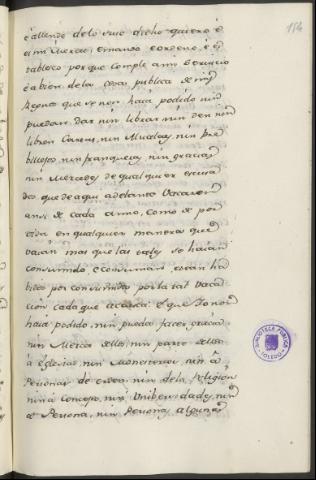 154
é allende de lo suso dicho quiero é
es mi Merced, é mando é ordeno, é es
tablezco porque cumple a mi servicio
é a bien de la cosa publica de mis
Regnos que yo non haia podido nin
pueda dar nin librar nin den nin
libren Cartas, nin Alvalaes, nin Pre
billejos, nin franquezas, nin gracias
nin Mercedes de qualquier escusa
dos que de aqui adelante vacaren
ansi de cada anno, como de por
vida en qualquier manera que
vaquen mas que las tales se haian
consumido, é consuman é sean ha
bidos por consumidos por la tal vaca
cion cada que acaezca é que Yo non
haia podido, nin pueda facer gracia
nin Merced dellos, nin parte dellos
á Eglesias, nin Monesterios nin á
Personas de
nin de la religion
nin á Concejos, nin Unibersidades, nin
á Persona, nin Personas algunas
BIBLIOTECA PUBLICA
TOLEDO